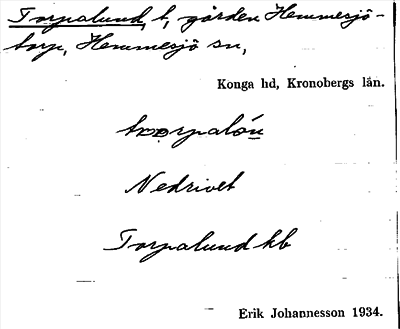 Torpalund, t, gården Hemmesjö-
torp, Hemmesjö sn,
Konga hd, Kronobergs län.
Nedrivet
Torpalund kb
Erik Johannesson 1934.